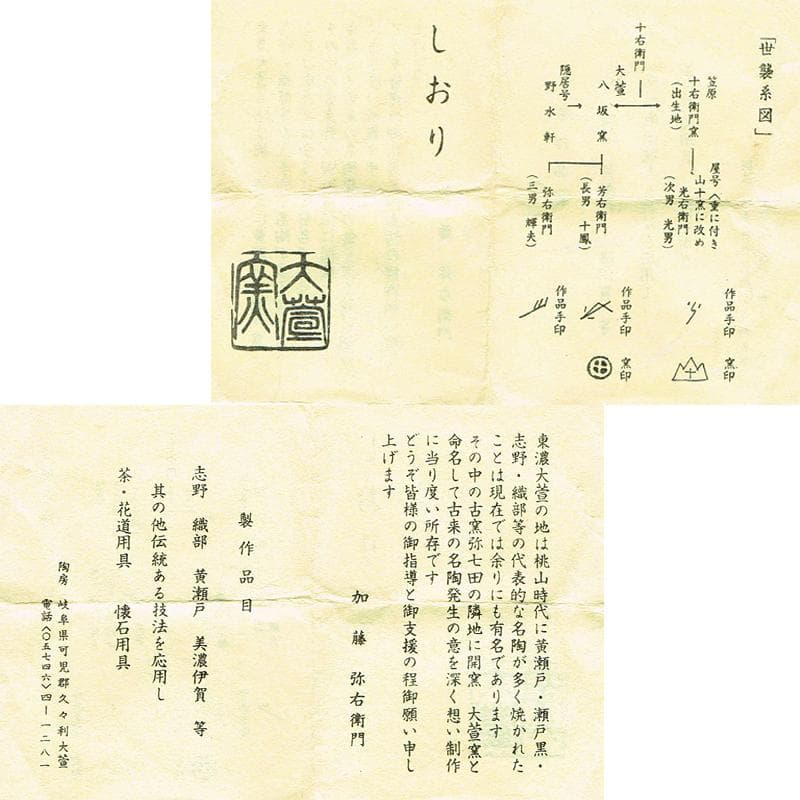 「世襲系図」
笠原
十右衛門窯
(出生地)
屋号〈重に付き
山十窯に改め
光右衛門
(次男 光男)
作品手印
窯印
十右衛門
大萱
八坂窯
芳右衛門
(長男 十鳳)
作品手印
窯印
隠居号
野水軒
弥右衛門
(三男 輝夫)
作品手印
しおり
大萱窯
東濃大萱の地は桃山時代に黄瀬戸・瀬戸黒・
志野・織部等の代表的な名陶が多く焼かれた
ことは現在では余りにも有名であります
その中の古窯弥七田の隣地に開窯 大萱窯と
命名して古来の名陶発生の意を深く想い制作
に当り度い所存です
どうぞ皆様の御指導と御支援の程御願い申し
上げます
加藤 弥右衛門
製作品目
志野 織部 黄瀬戸 美濃伊賀 等
其の他伝統ある技法を応用し
茶・花道用具 懐石用具
陶房 岐阜県可児郡久々利大萱
電話〈〇五七四六〉四ー一二八一